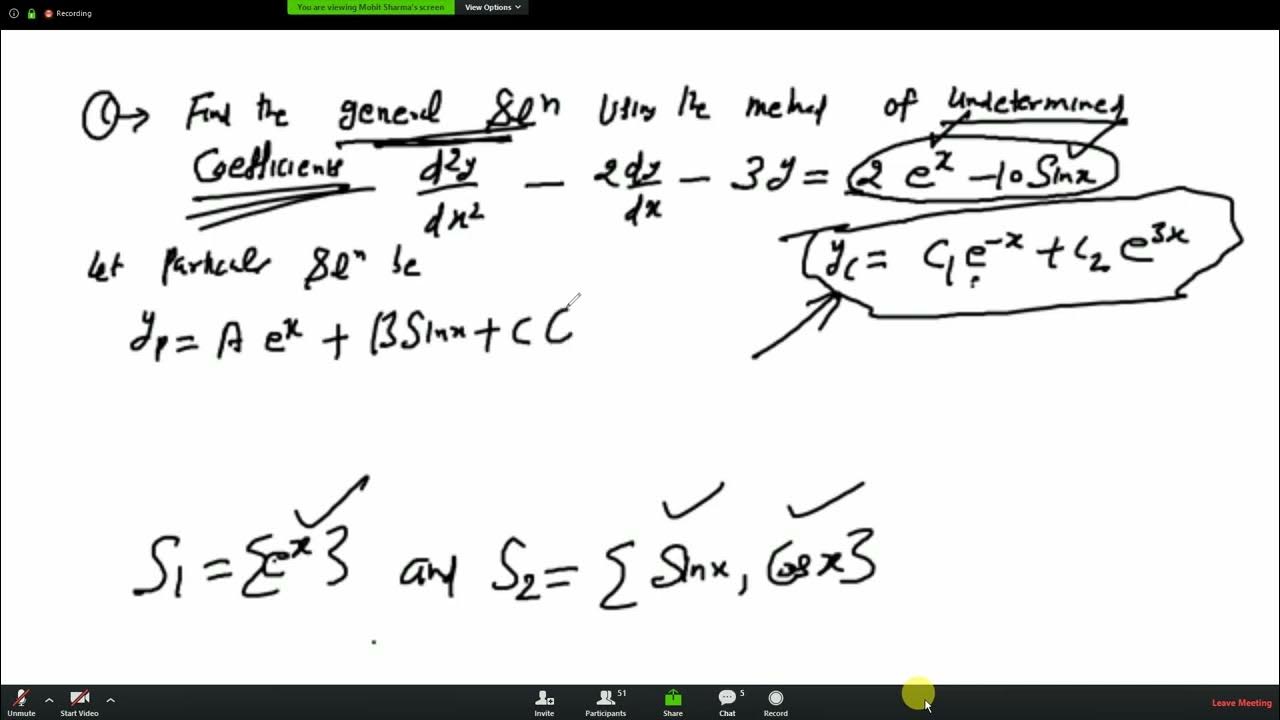 Recording
You are viewing Mohit Sharma's screen
View Options
Q→ Find the general Solⁿ Using the method of Undetermined
Coefficients d²y/dx² - 2dy/dx - 3y = 2 e^x - 10 Sinx
y_c = C₁ e^-x + C₂ e^3x
Let Particular Solⁿ be
y_p = A e^x + B Sinx + C C
S₁ = {e^x} and S₂ = { Sinx, Cosx}
Unmute
Start Video
Invite
Participants 51
Share
Chat 5
Record
Leave Meeting